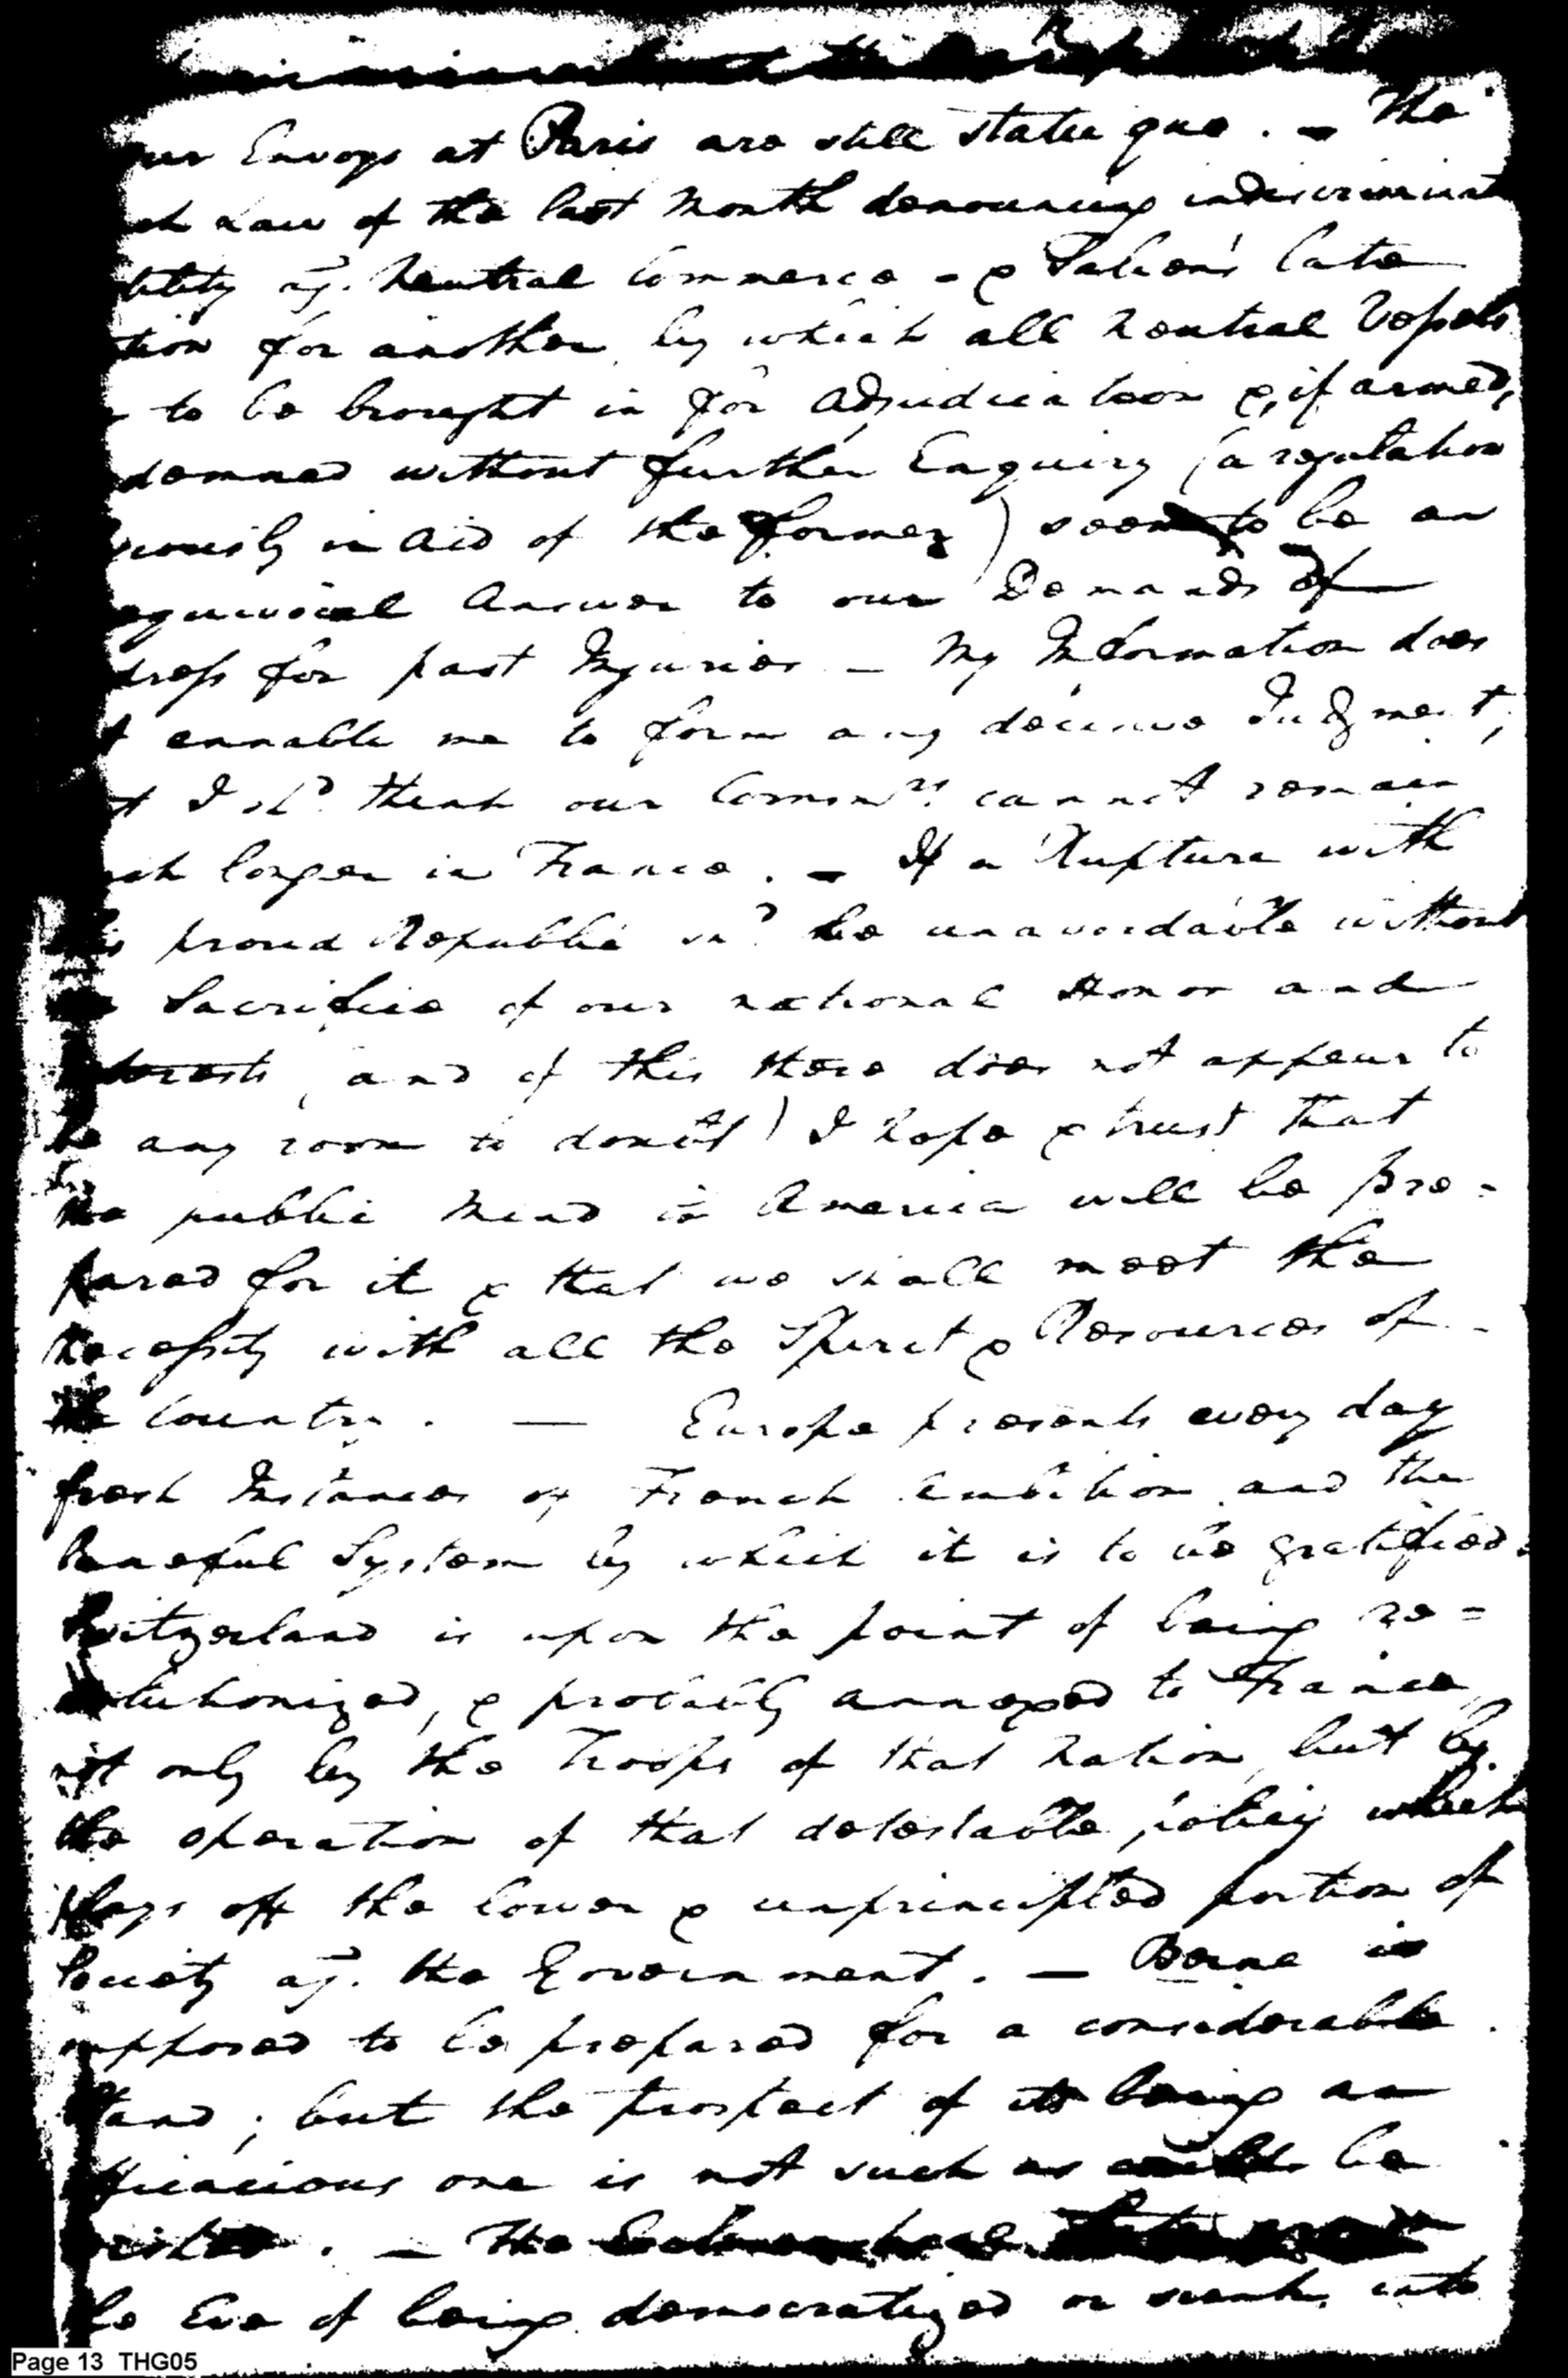 our Envoys at Paris are still statu quo. - The
ch Law of the last Month denouncing indiscriminate
tility agt. Neutral Commerce - & late
tion for another by which all Neutral Vessels
to be brought in for adjudication &, if armed,
demned without further Enquiry (a regulation
viously in aid of the former) seem to be an
equivocal Answer to our Demands of
dress for past Injuries - My Information does
t ennable me to form any decisive Judgment,
t I shd. think our Commrs. cannot remain
ch longer in France. - If a Rupture with
is proud Republic shd. be unavoidable without
Sacrifice of our national Honor and
terests (and of this there does not appear to
be any room to doubt) I hope & trust that
the public Mind in America will be pre-
pared for it & that we shall meet the
Necessity with all the Spirit & Resources of
the Country. — Europe presents every day
fresh Instances of French Ambition and the
baneful System by which it is to be gratified.
Switzerland is upon the point of being re-
volutionized, & probably annexed to France,
not only by the Troops of that Nation, but by
the operation of that detestable policy which
plays off the lower & unprincipled portion of
Society agt. the Government. — Berne is
supposed to be prepared for a considerable
stand; but the prospect of its being an
fficacious one is not such as could be
. - The
the Eve of being democratized or sunk into
Page 13 THG05